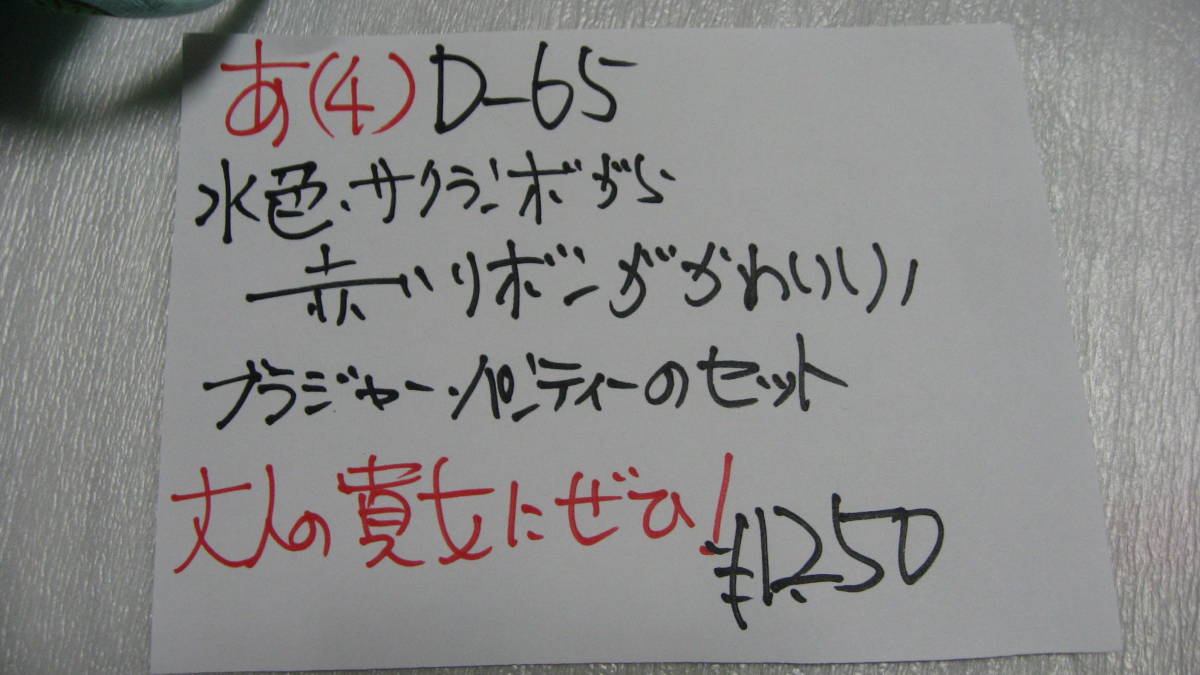 あ(4)D-65
水色、サクランボがら
赤いリボンがかわいい
ブラジャー・パンティーのセット
大人の貴女にぜひ!
¥1,250